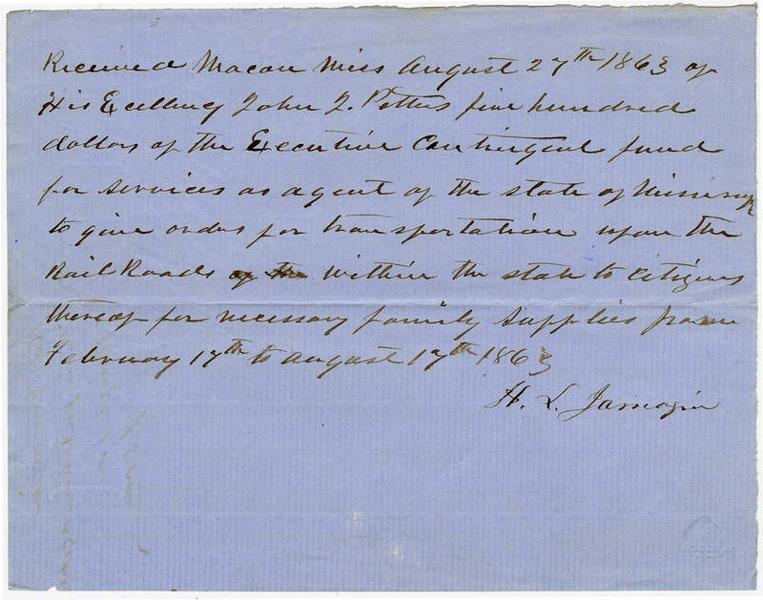 Received Macon Miss August 27th 1863 of
His Excellency John J. Pettus five hundred
dollars of the Executive Contingent fund
for services as agent of the state of Mississippi
to give orders for transportation upon the
Rail Roads of the within the state to citizens
thereof for necessary family supplies from
February 17th to August 17th 1863
H. L. Jarnagin